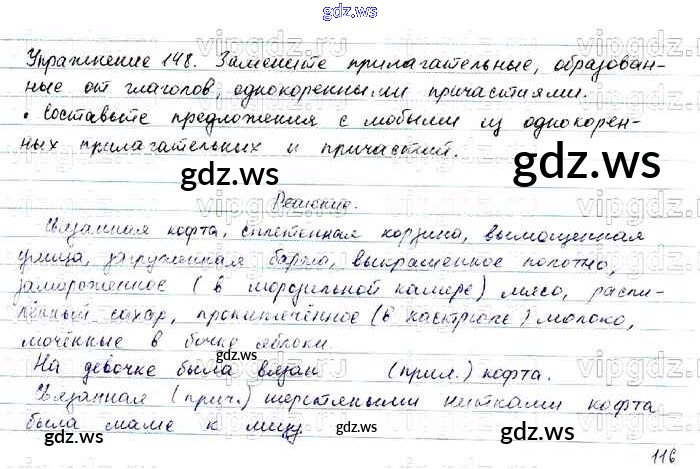 gdz.ws
Упражнение 148. Замените прилагательные, образован-
ные от глаголов, однокоренными причастиями.
• Составьте предложения с любыми из однокорен-
ных прилагательных и причастий.
gdz.ws
gdz.ws
Решение.
Связанная кофта, сплетенная корзина, вымощенная
улица, загруженная баржа, выкрашенное полотно,
замороженное (в морозильной камере) мясо, распи-
ленный сахар, прокипячённое (в кастрюле) молоко,
мочённые в бочке яблоки.
На девочке была вязан (прил.) кофта.
Связанная (прич.) шерстяными нитками кофта
была маме к лицу.
gdz.ws
gdz.ws
gdz.ws
116